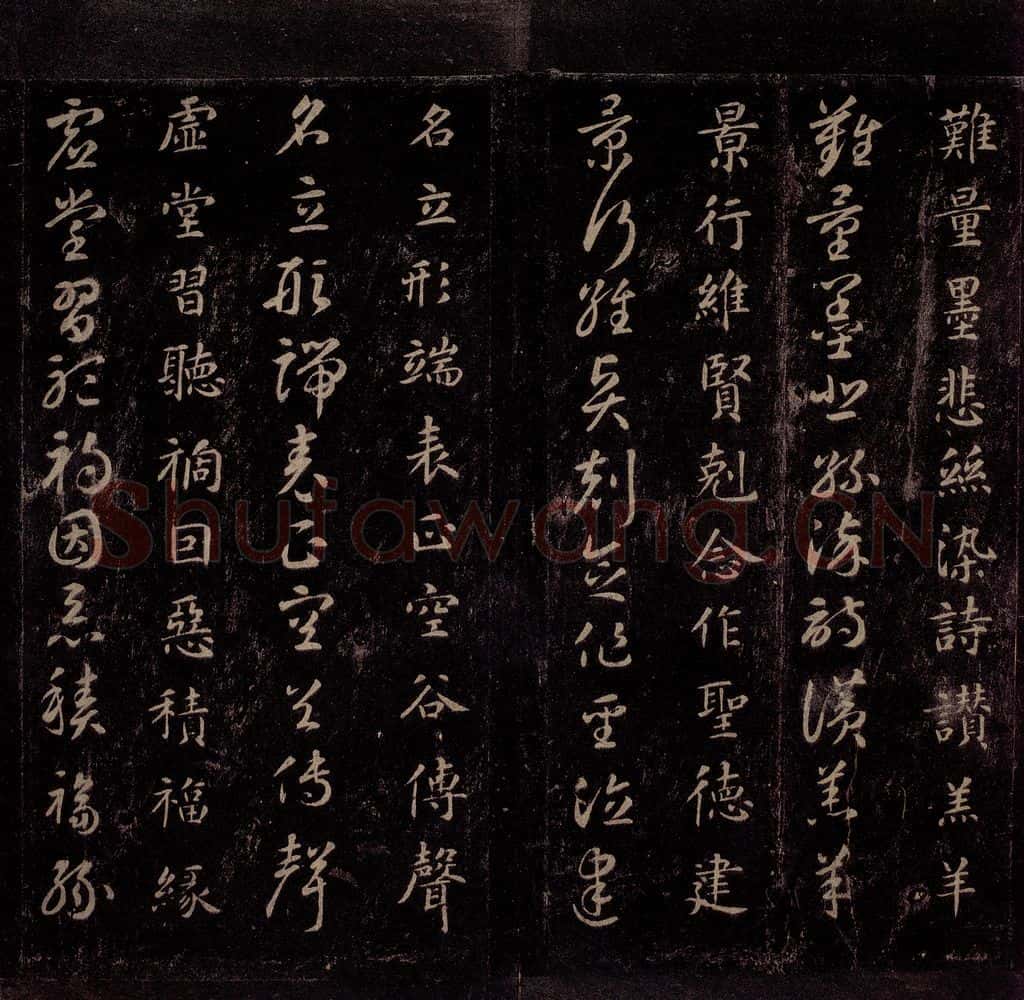 難量墨悲絲染詩讚羔羊
難量墨悲絲染詩讚羔羊
景行維賢剋念作聖德建
景行維賢剋念作聖德建
名立形端表正空谷傳聲
名立形端表正空谷傳聲
虛堂習聽禍因惡積福緣
虛堂習聽禍因惡積福緣
Shufawang.CN